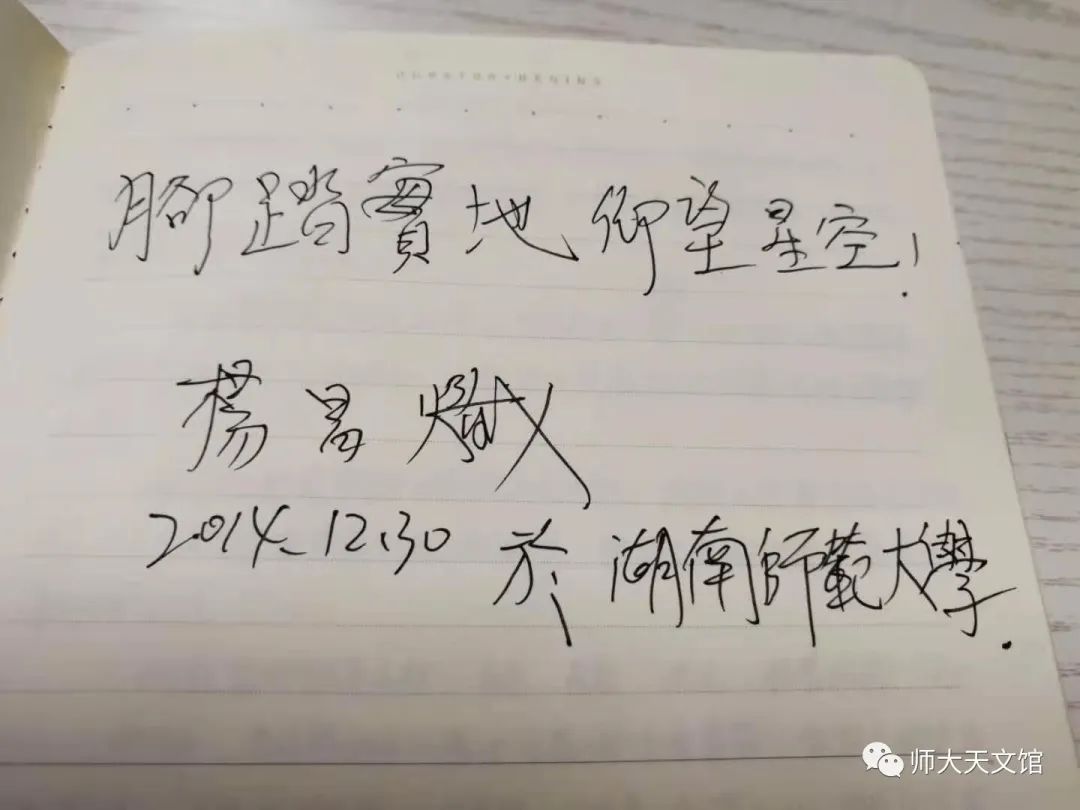 腳踏實地 仰望星空!
楊昌熾
2014.12.30 於湖南師範大學.
师大天文馆